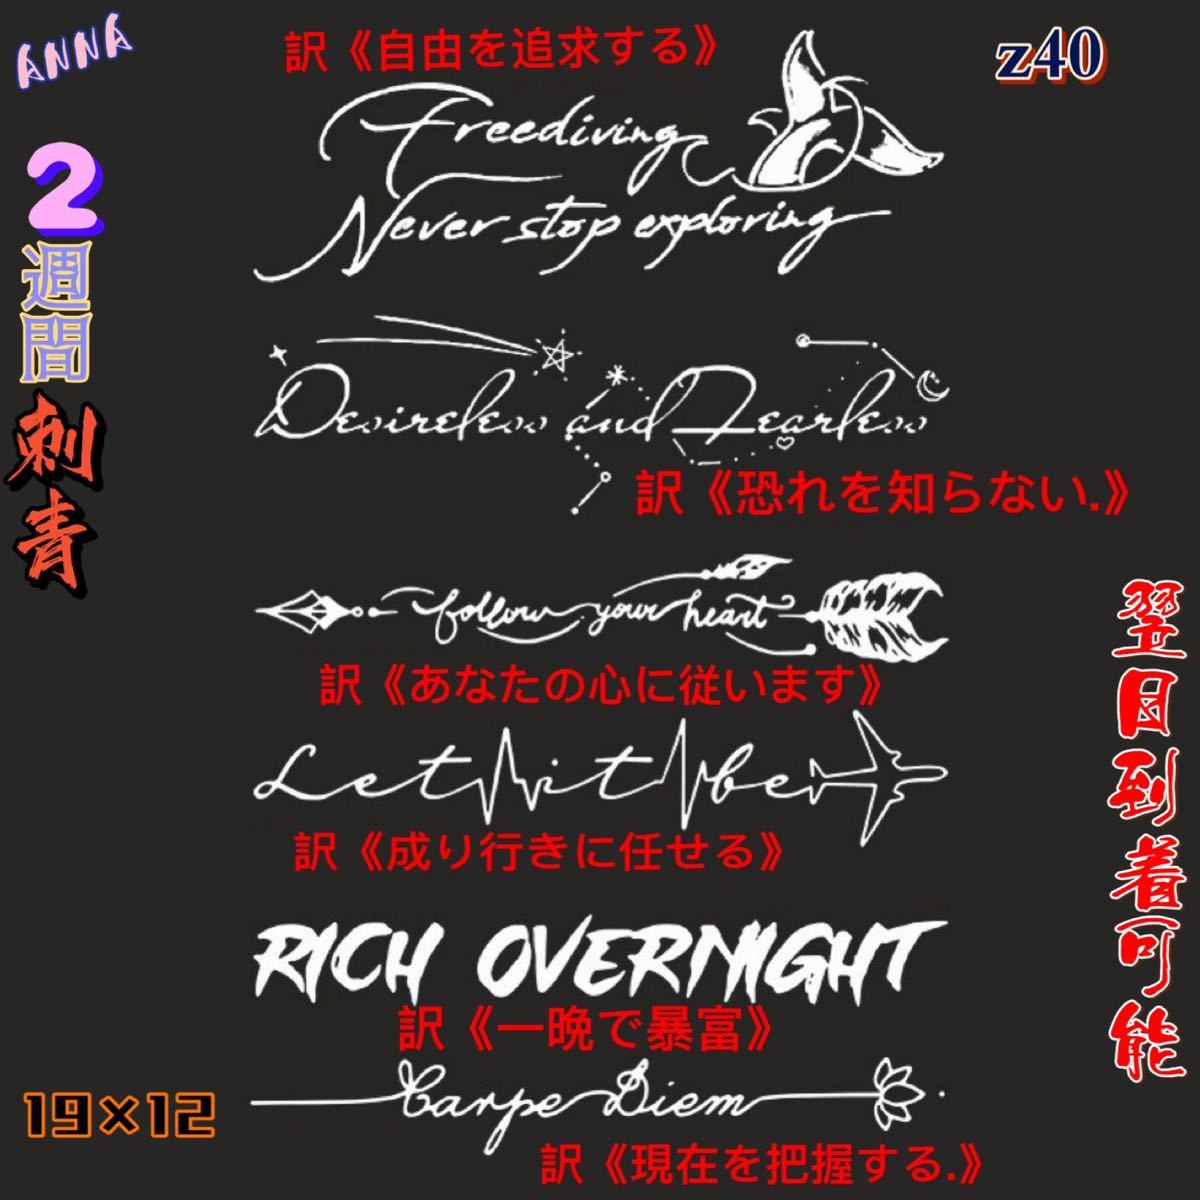 ANNA
訳《自由を追求する》
z40
Freediving
Never stop exploring
2週間刺青
Desireless and Fearless
訳《恐れを知らない.》
follow your heart
訳《あなたの心に従います》
翌日到着可能
Let it be
訳《成り行きに任せる》
RICH OVERNIGHT
訳《一晩で暴富》
Carpe Diem
19×12
訳《現在を把握する.》